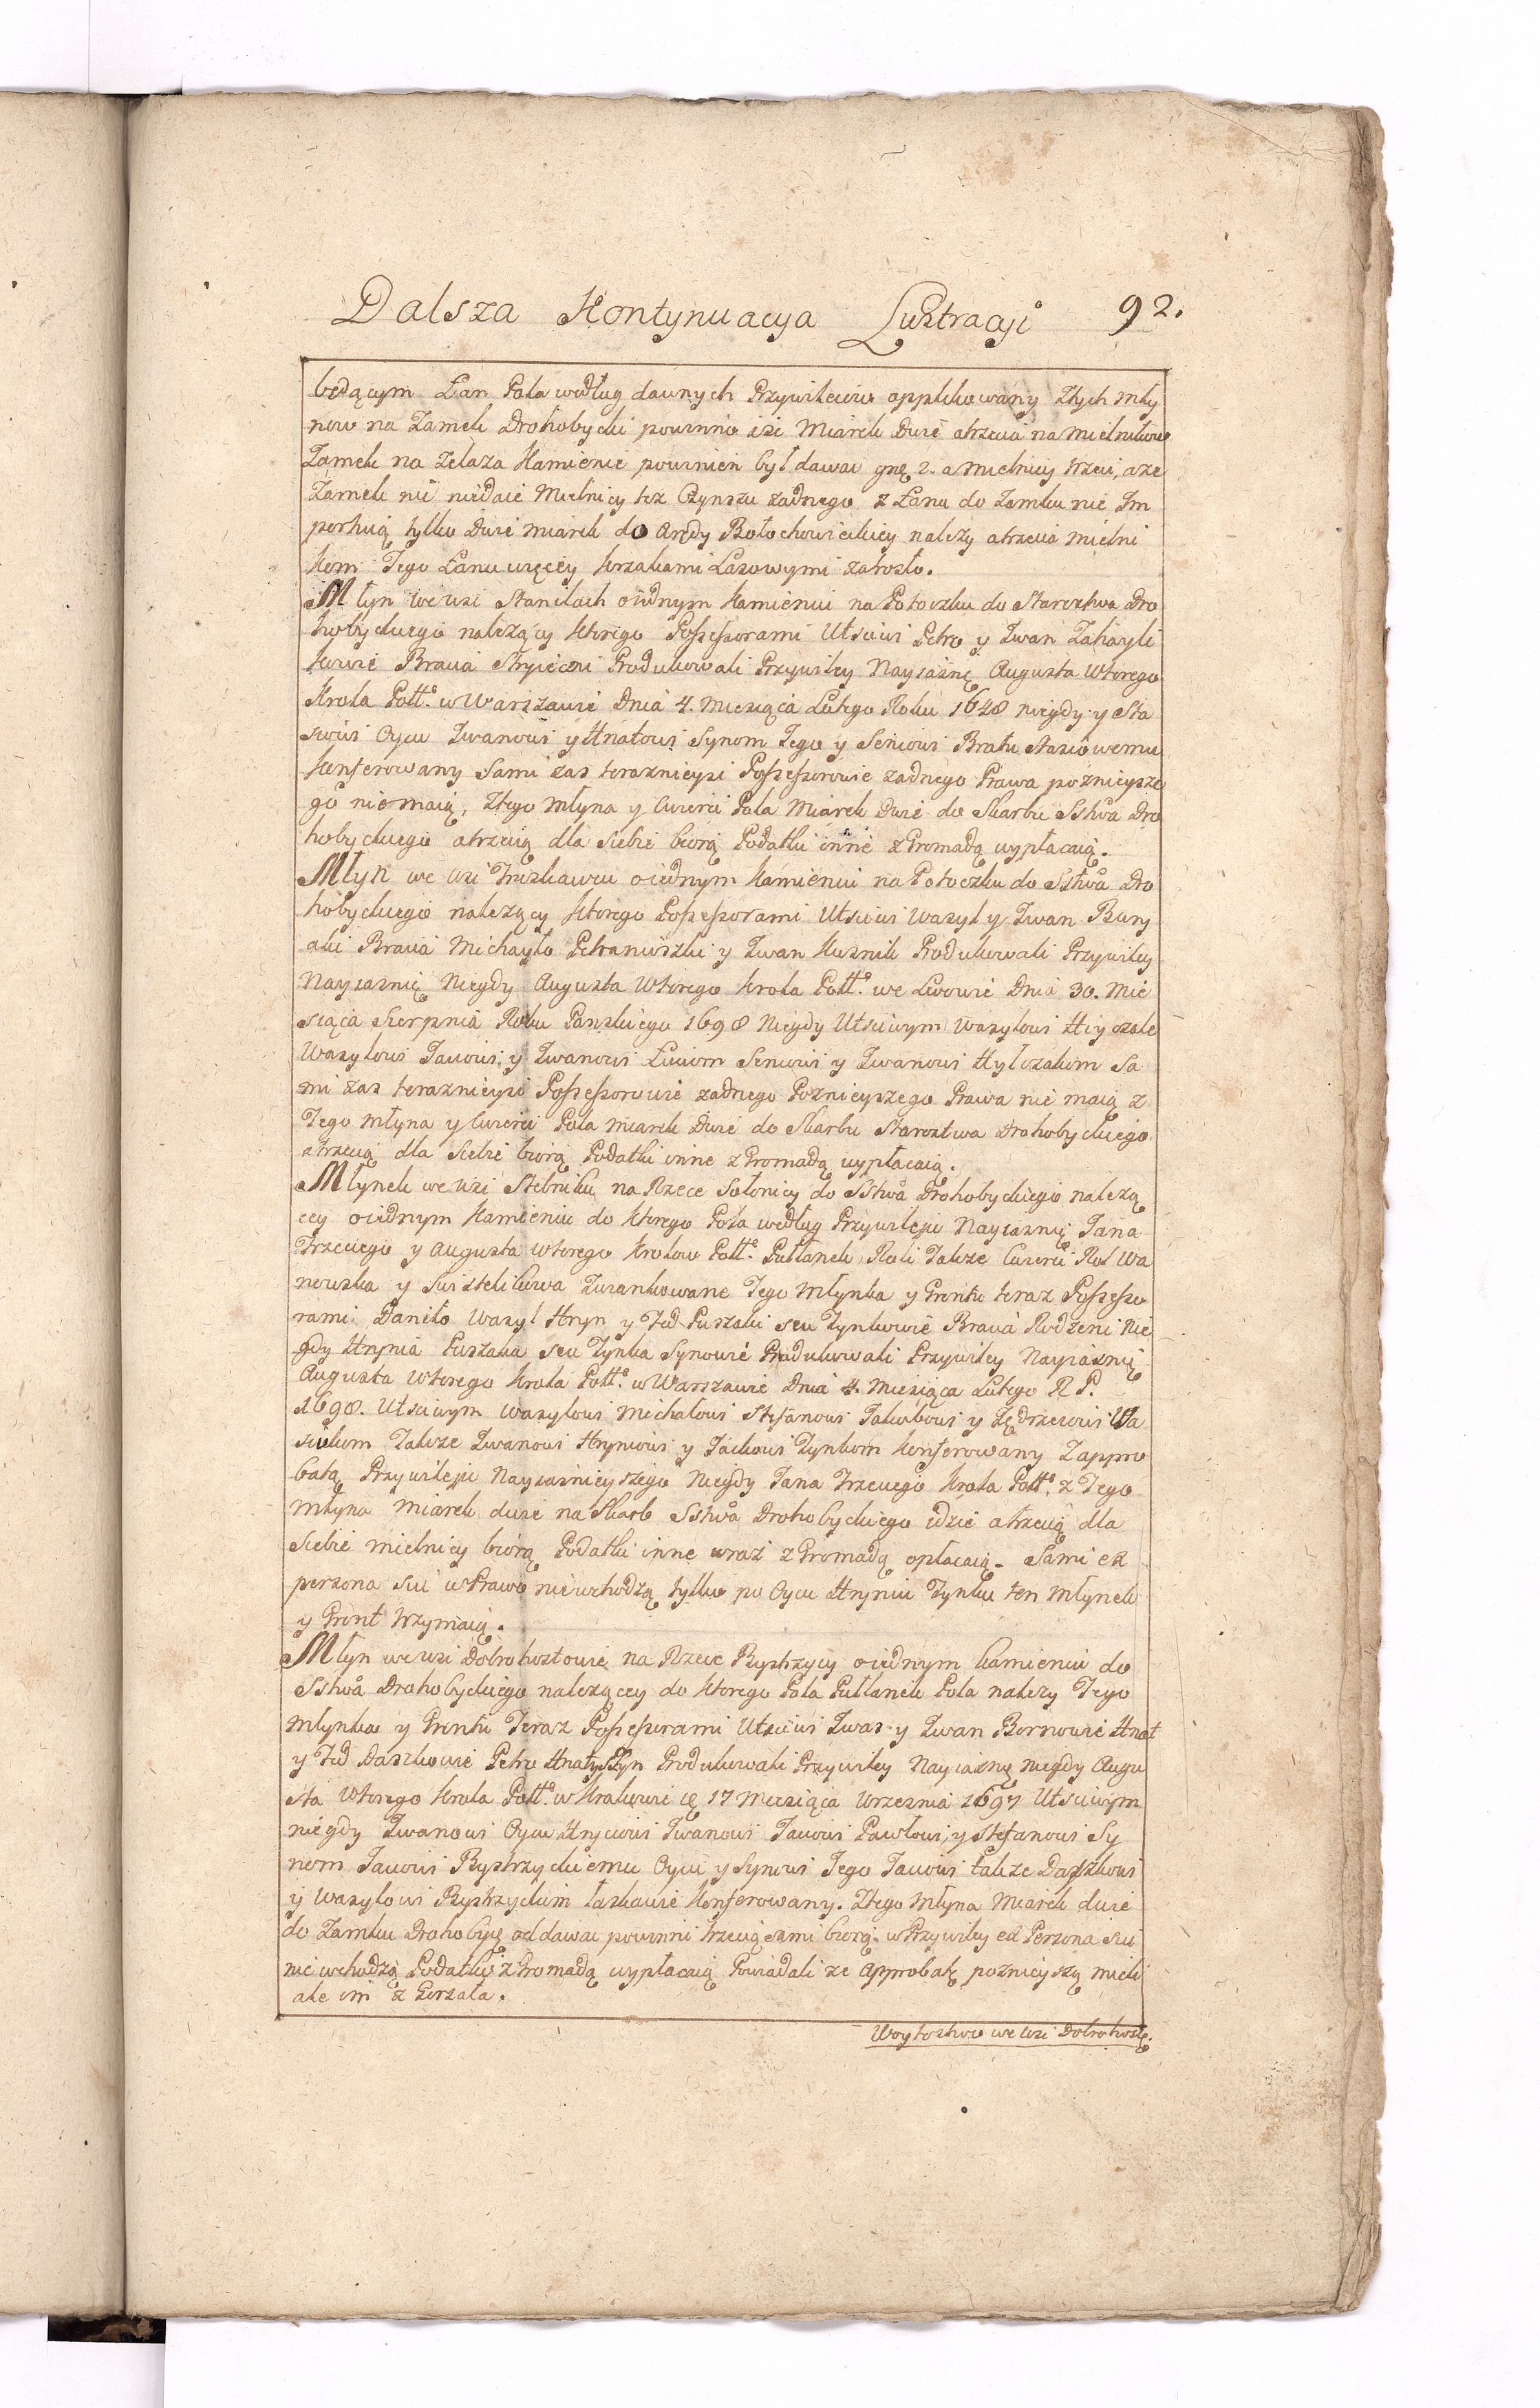 Dalsza Kontynuacya Lustracyi 92.
będącym Łan Pola według dawnych Przywilejow applikowany Ztych mły
now na Zamek Drohobycki powinno isc Miarek Dwie atrzecia na mielnikow
Zamek na Zelaza Kamienie powinien był dawac gnę 2. a mielnicy trzeci, aze
Zamek nic niedaie Mielnicy tez Czynszu zadnego z Łanu do Zamku nie Im
portuią tylko Dwie miarek do Arędy Bolochowieckiey nalezy atrzecia mielni
kom Tego Łanu więcey krzakami Lasowymi zarosło.
Młyn we wsi Stanilach oiednym Kamieniu na Potoczku do Starostwa Dro
hobyckiego nalezący ktorego Possessorami Utsciwi Petro y Iwan Zaharyli
kowie Bracia Stryieczni Produkowali Przywiley Nayiasnę Augusta Wtorego
Krola Pollo. w Warszawie Dnia 4. Miesiąca Lutego Roku 1648 niegdy y Sta
siowi Oycu Iwanowi y Hnatowi Synom Iego y Seniowi Bratu Stasiowemu
konferowany Sami zas teraznieysi Possessorowie zadnego Prawa poznieysze
go niemaią, Ztego Młyna y Cwierci Pola Miarek Dwie do Skarbu Sstwa Dro
hobyckiego atrzecią dla siebie biorą Podatki inne z Gromadą wypłacaią.
Młyn we wsi Truskawcu oiednym Kamieniu na Potoczku do Sstwa Dro
hobyckiego nalezący ktorego Possessorami Utsciwi Wasyl y Iwan Bury
aki Bracia Michayło Petraniszki y Iwan Kusnik Produkowali Przywiley
Nayiasnię Niegdy Augusta Wtorego Krola Pollo. we Lwowie Dnia 30. Mie
siąca Sierpnia Roku Panskiego 1698 Niegdy Utsciwym Wasylowi Hiyczale
Wasylowi Iaciowi, y Iwanowi Łuciom Seniowi y Iwanowi Hylczakom Sa
mi zas teraznieysi Possessorowie zadnego Poznieyszego Prawa nie maią z
Tego Młyna y Cwierci Pola miarek Dwie do Skarbu Starostwa Drohobyckiego
atrzecią dla siebie biorą Podatki inne z Gromadą wypłacaią.
Młynek we wsi Stebniku na Rzece Solonicy do Sstwa Drohobyckiego nalezą
cey oiednym Kamieniu do ktorego Pola według Przywileju Nayiasnię Iana
Trzeciego y Augusta Wtorego Krolow Pollo. Pułłanek Roli Takze Cwierci Rol Wa
nowska y Swistelikowa Inrankowane Tego Młynka y Gruntu teraz Possesso
rami Daniło Wasyl Hryn y Fed Puszaki seu Zynkowie Bracia Rodzeni Nie
gdy Hrynia Puszaka seu Zynka Synowie Produkowali Przywiley Nayiasnię
Augusta Wtorego Krola Pollo. w Warszawie Dnia 4. Miesiąca Lutego R P.
1698. Utsciwym Wasylowi Michałowi Stefanowi Iakubowi y Jędrzeiowi Wa
siukom Takze Iwanowi Hryniowi y Iackowi Zynkom konferowany Zappro
batą Przywileju Nayiasnieyszego Niegdy Iana Trzeciego Krola Pollo. z Tego
młyna miarek dwie na Skarb Sstwa Drohobyckiego idzie atrzecią dla
siebie mielnicy biorą Podatki inne wraz z Gromadą opłacaią. Sami ex
persona sui w Prawo niewchodzą tylko po Oycu Hryniu Zynku ten Młynek
y Grunt trzymaią.
Młyn we wsi Dobrohostowie na Rzece Bystrzycy oiednym kamieniu do
Sstwa Drohobyckiego nalezącey do ktorego Pola Pułłanek Pola nalezy Tego
Młynka y Gruntu Teraz Possessorami Utsciwi Iwas y Iwan Bornowie Hnat
y Fed Daszkowie Petro Hnatyszyn Produkowali Przywiley Nayiasnę niegdy Augu
sta Wtorego Krola Pollo. w Krakowie ię 17 Miesiąca Wrzesnia 1697 Utsciwym
niegdy Iwanowi Oycu Hryciowi Iwanowi Iaciowi Pawłowi, y Stefanowi Sy
nom Iaciowi Bystrzyckiemu Oycu y Synowi Iego Iaciowi także Daszkowi
y Wasylowi Bystrzyckim łaskawie konferowany. Ztego Młyna Miarek dwie
do Zamku Drohobyę oddawac powinni trzecią sami biorą. w Przywiley ex Persona sui
nie wchodzą Podatki z Gromadą wypłacaią Powiadali ze Approbatę poznieyszą mieli
ale im z Gorzała.
Woytostwo we wsi Dobrohostę.